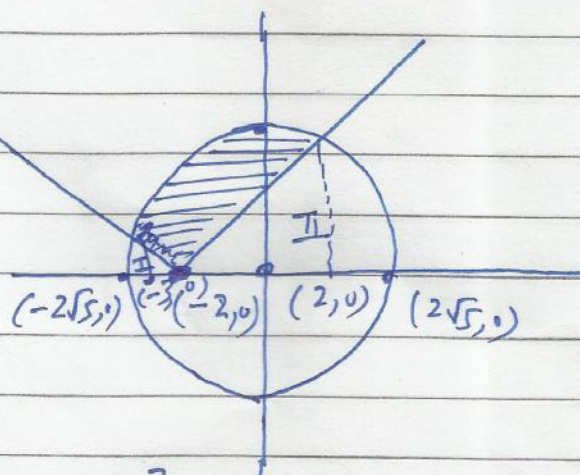 II
(-2√5,0) (-3,0) (-2,0) (2,0) (2√5,0)